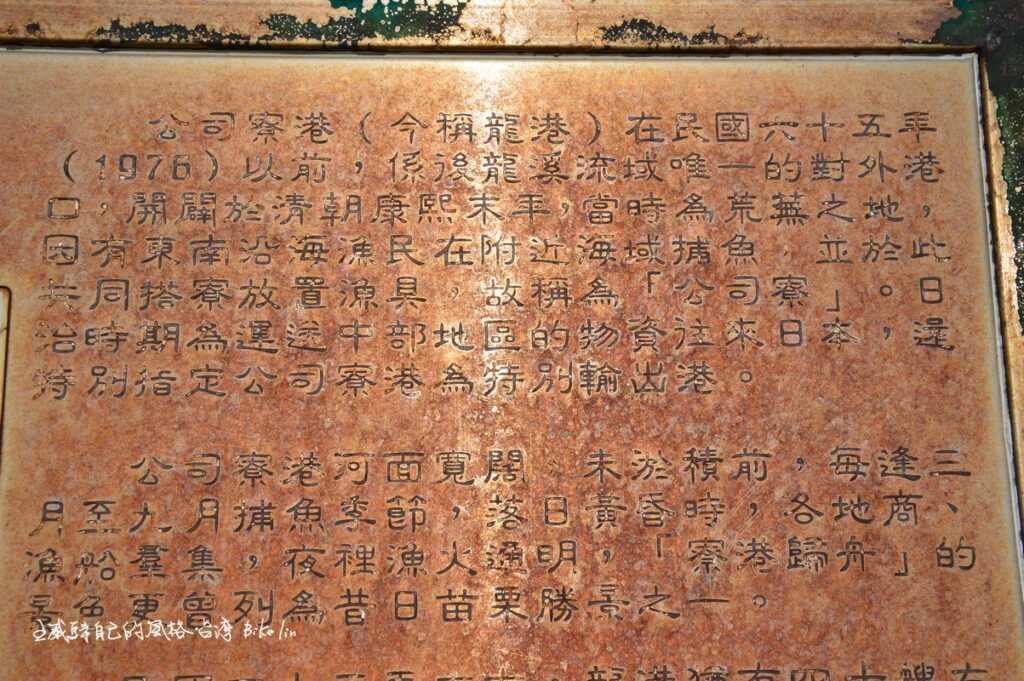 公司寮港(今稱龍港)在民國六十五年
(1976)以前,係後龍溪流域唯一的對外港
口,開闢於清朝康熙末年,當時為荒蕪之地,
因有東南沿海漁民在附近海域捕魚,並於此
共同搭寮放置漁具,故稱為「公司寮」。日
治時期為運送中部地區的物資往來日本,遂
特別指定公司寮港為特別輸出港。
公司寮港河面寬闊,未淤積前,每逢三、
月至九月捕魚季節,落日黃昏時,各地商、
漁船羣集,夜裡漁火通明,「寮港歸舟」的
景色更曾列為昔日苗栗勝景之一。
自己的風格 台灣 Bito lin